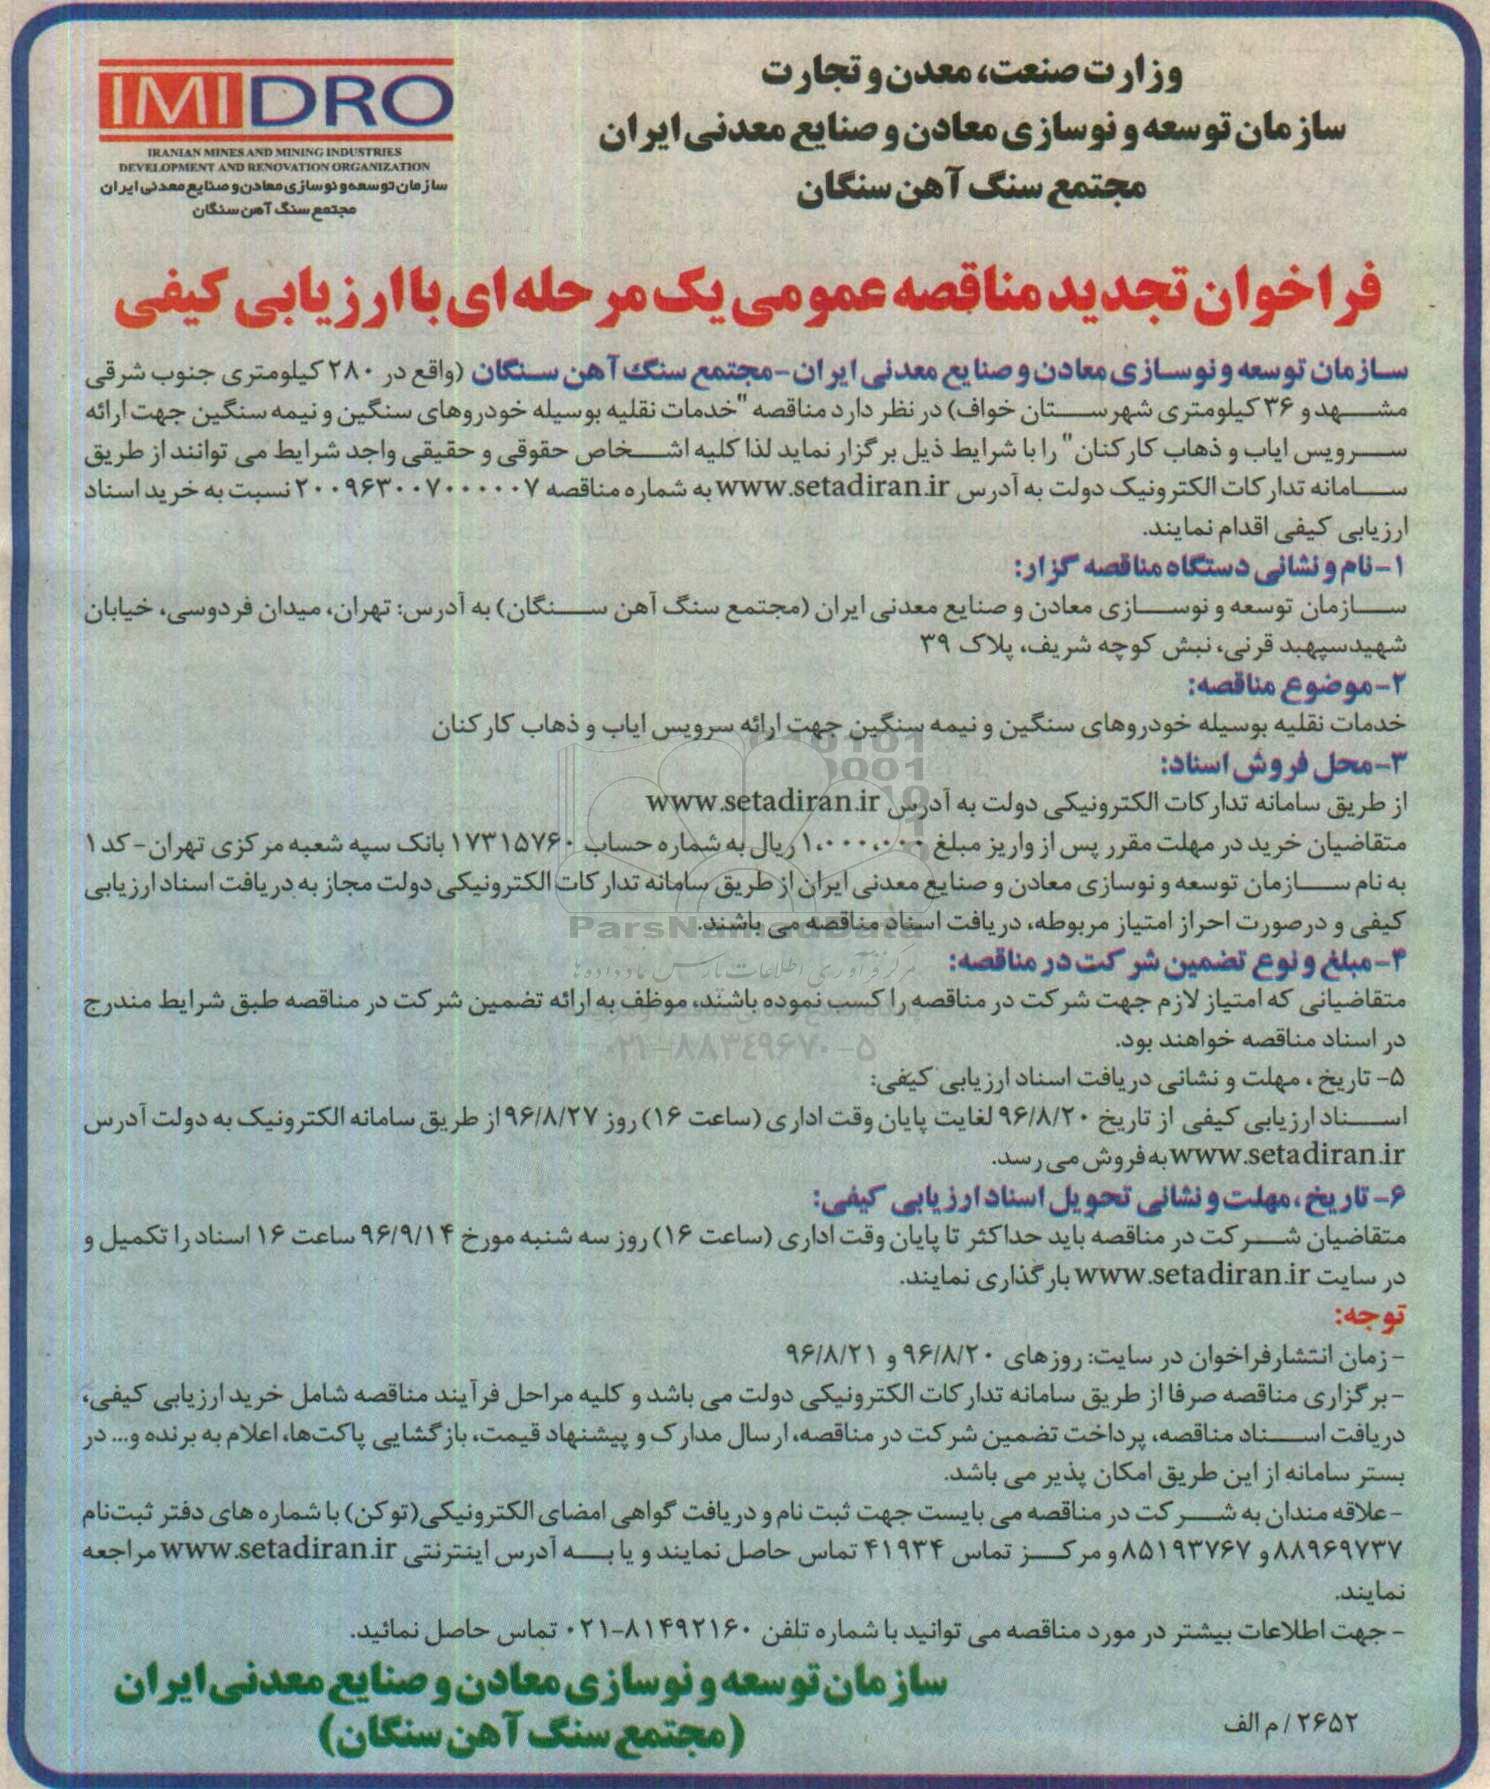 وزارت صنعت، معدن و تجارت
سازمان توسعه و نوسازی معادن و صنایع معدنی ایران
مجتمع سنگ آهن سنگان
IMIDRO
IRANIAN MINES AND MINING INDUSTRIES
DEVELOPMENT AND RENOVATION ORGANIZATION
سازمان توسعه و نوسازی معادن و صنایع معدنی ایران
مجتمع سنگ آهن سنگان
فراخوان تجدید مناقصه عمومی یک مرحله ای با ارزیابی کیفی
سازمان توسعه و نوسازی معادن و صنایع معدنی ایران-مجتمع سنگ آهن سنگان (واقع در ۲۸۰ کیلومتری جنوب شرقی
مشهد و ۳۶ کیلومتری شهرستان خواف) در نظر دارد مناقصه "خدمات نقلیه بوسیله خودروهای سنگین و نیمه سنگین جهت ارائه
سرویس ایاب و ذهاب کارکنان" را با شرایط ذیل برگزار نماید لذا کلیه اشخاص حقوقی و حقیقی واجد شرایط می توانند از طریق
سامانه تدارکات الکترونیک دولت به آدرس www.setadiran.ir به شماره مناقصه ۲۰۰۹۶۳۰۰۷۰۰۰۰۰۷ نسبت به خرید اسناد
ارزیابی کیفی اقدام نمایند.
۱-نام و نشانی دستگاه مناقصه گزار:
سازمان توسعه و نوسازی معادن و صنایع معدنی ایران (مجتمع سنگ آهن سنگان) به آدرس: تهران، میدان فردوسی، خیابان
شهیدسپهبد قرنی، نبش کوچه شریف، پلاک ۳۹
۲-موضوع مناقصه:
خدمات نقلیه بوسیله خودروهای سنگین و نیمه سنگین جهت ارائه سرویس ایاب و ذهاب کارکنان
۳-محل فروش اسناد:
از طریق سامانه تدارکات الکترونیکی دولت به آدرس www.setadiran.ir
متقاضیان خرید در مهلت مقرر پس از واریز مبلغ ۱،۰۰۰،۰۰۰ ریال به شماره حساب ۱۷۳۱۵۷۶۰ بانک سپه شعبه مرکزی تهران- کد ۱
به نام سازمان توسعه و نوسازی معادن و صنایع معدنی ایران از طریق سامانه تدارکات الکترونیکی دولت مجاز به دریافت اسناد ارزیابی
کیفی و درصورت احراز امتیاز مربوطه، دریافت اسناد مناقصه می باشند.
ParsNamadData
مرکز فرآوری اطلاعات پارس نماد داده ها
۴-مبلغ و نوع تضمین شرکت در مناقصه:
متقاضیانی که امتیاز لازم جهت شرکت در مناقصه را کسب نموده باشند، موظف به ارائه تضمین شرکت در مناقصه طبق شرایط مندرج
در اسناد مناقصه خواهند بود.
۰۲۱-۸۸۳۴۹۶۷۰-۵
۵- تاریخ، مهلت و نشانی دریافت اسناد ارزیابی کیفی:
اسناد ارزیابی کیفی از تاریخ ۹۶/۸/۲۰ لغایت پایان وقت اداری (ساعت ۱۶) روز ۹۶/۸/۲۷ از طریق سامانه الکترونیک به دولت آدرس
www.setadiran.ir به فروش می رسد.
۶- تاریخ، مهلت و نشانی تحویل اسناد ارزیابی کیفی:
متقاضیان شرکت در مناقصه باید حداکثر تا پایان وقت اداری (ساعت ۱۶) روز سه شنبه مورخ ۹۶/۹/۱۴ ساعت ۱۶ اسناد را تکمیل و
در سایت www.setadiran.ir بارگذاری نمایند.
توجه:
- زمان انتشارفراخوان در سایت: روزهای ۹۶/۸/۲۰ و ۹۶/۸/۲۱
- برگزاری مناقصه صرفا از طریق سامانه تدارکات الکترونیکی دولت می باشد و کلیه مراحل فرآیند مناقصه شامل خرید ارزیابی کیفی،
دریافت اسناد مناقصه، پرداخت تضمین شرکت در مناقصه، ارسال مدارک و پیشنهاد قیمت، بازگشایی پاکت‌ها، اعلام به برنده و... در
بستر سامانه از این طریق امکان پذیر می باشد.
- علاقه مندان به شرکت در مناقصه می بایست جهت ثبت نام و دریافت گواهی امضای الکترونیکی(توکن) با شماره های دفتر ثبت‌نام
۸۸۹۶۹۷۳۷ و ۸۵۱۹۳۷۶۷ و مرکز تماس ۴۱۹۳۴ تماس حاصل نمایند و یا به آدرس اینترنتی www.setadiran.ir مراجعه
نمایند.
- جهت اطلاعات بیشتر در مورد مناقصه می توانید با شماره تلفن ۸۱۴۹۲۱۶۰-۰۲۱ تماس حاصل نمائید.
سازمان توسعه و نوسازی معادن و صنایع معدنی ایران
(مجتمع سنگ آهن سنگان)
۲۶۵۲/ م الف